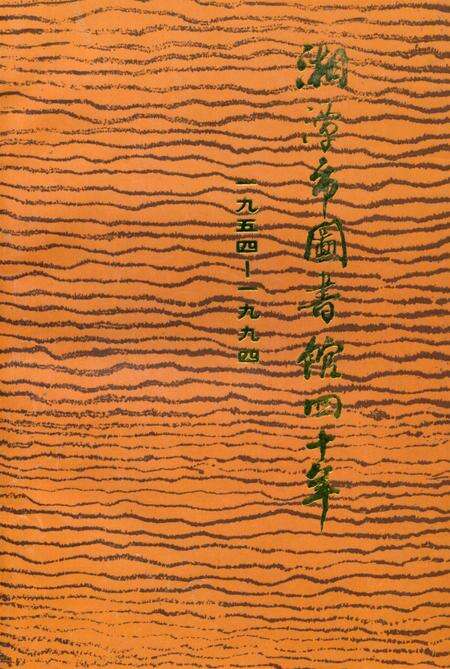 湘潭市圖書館四十年
一九五四—一九九四